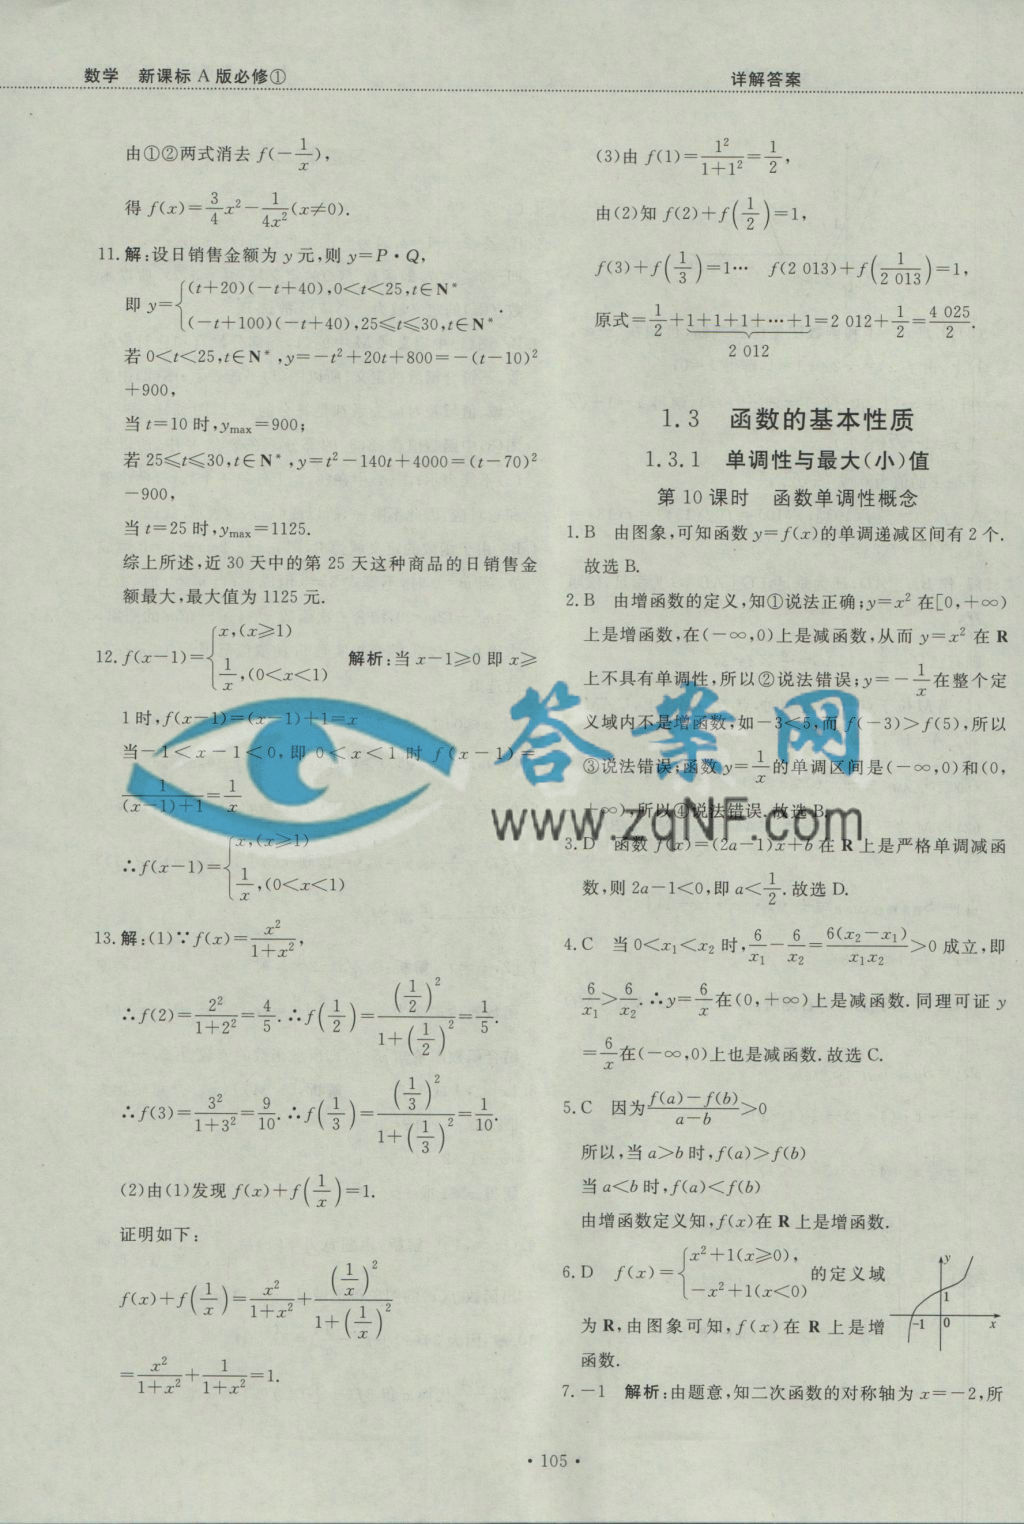 数学 新课标 A 版必修①
详解答案
由①②两式消去 f(-1/x),
得 f(x)=3/4x²-1/4x²(x≠0).
11. 解:设日销售金额为 y 元,则 y=P·Q,
即 y={(t+20)(-t+40),0<t<25,t∈N*
(-t+100)(-t+40),25≤t≤30,t∈N*.
若 0<t<25,t∈N*,y=-t²+20t+800=-(t-10)²
+900,
当 t=10 时,ymax=900;
若 25≤t≤30,t∈N*,y=t²-140t+4000=(t-70)²
-900,
当 t=25 时,ymax=1125.
综上所述,近 30 天中的第 25 天这种商品的日销售金
额最大,最大值为 1125 元.
12. f(x-1)={x,(x≥1)
1/x,(0<x<1) 解析:当 x-1≥0 即 x≥
1 时,f(x-1)=(x-1)+1=x
当-1<x-1<0,即 0<x<1 时 f(x-1)=
1/((x-1)+1)=1/x
∴f(x-1)={x,(x≥1)
1/x,(0<x<1)
13. 解:(1)∵f(x)=x²/(1+x²),
∴f(2)=2²/(1+2²)=4/5.∴f(1/2)=(1/2)²/(1+(1/2)²)=1/5.
∴f(3)=3²/(1+3²)=9/10.∴f(1/3)=(1/3)²/(1+(1/3)²)=1/10.
(2)由(1)发现 f(x)+f(1/x)=1.
证明如下:
f(x)+f(1/x)=x²/(1+x²)+(1/x)²/(1+(1/x)²)
=x²/(1+x²)+1/(1+x²)=1.
(3)由 f(1)=1²/(1+1²)=1/2,
由(2)知 f(2)+f(1/2)=1,
f(3)+f(1/3)=1… f(2 013)+f(1/2 013)=1,
原式=1/2+1+1+1+…+1=2 012+1/2=4 025/2.
2 012
1.3 函数的基本性质
1.3.1 单调性与最大(小)值
第 10 课时 函数单调性概念
1. B 由图象,可知函数 y=f(x)的单调递减区间有 2 个.
故选 B.
2. B 由增函数的定义,知①说法正确;y=x² 在[0,+∞)
上是增函数,在(-∞,0)上是减函数,从而 y=x² 在 R
上不具有单调性,所以②说法错误;y=-1/x在整个定
义域内不是增函数,如-3<5,而 f(-3)>f(5),所以
③说法错误;函数 y=1/x的单调区间是(-∞,0)和(0,
+∞),所以④说法错误.故选 B.
3. D 函数 f(x)=(2a-1)x+b 在 R 上是严格单调减函
数,则 2a-1<0,即 a<1/2.故选 D.
4. C 当 0<x₁<x₂ 时,6/x₁-6/x₂=6(x₂-x₁)/x₁x₂>0 成立,即
6/x₁>6/x₂.∴y=6/x在(0,+∞)上是减函数.同理可证 y
=6/x在(-∞,0)上也是减函数.故选 C.
5. C 因为(f(a)-f(b))/(a-b)>0
所以,当 a>b 时,f(a)>f(b)
当 a<b 时,f(a)<f(b)
由增函数定义知,f(x)在 R 上是增函数.
6. D f(x)={x²+1(x≥0),
-x²+1(x<0) 的定义域
为 R,由图象可知,f(x)在 R 上是增
函数.
y
1
-1 0 x
7. -1 解析:由题意,知二次函数的对称轴为 x=-2,所
· 105 ·
答案网
www.zqNF.com